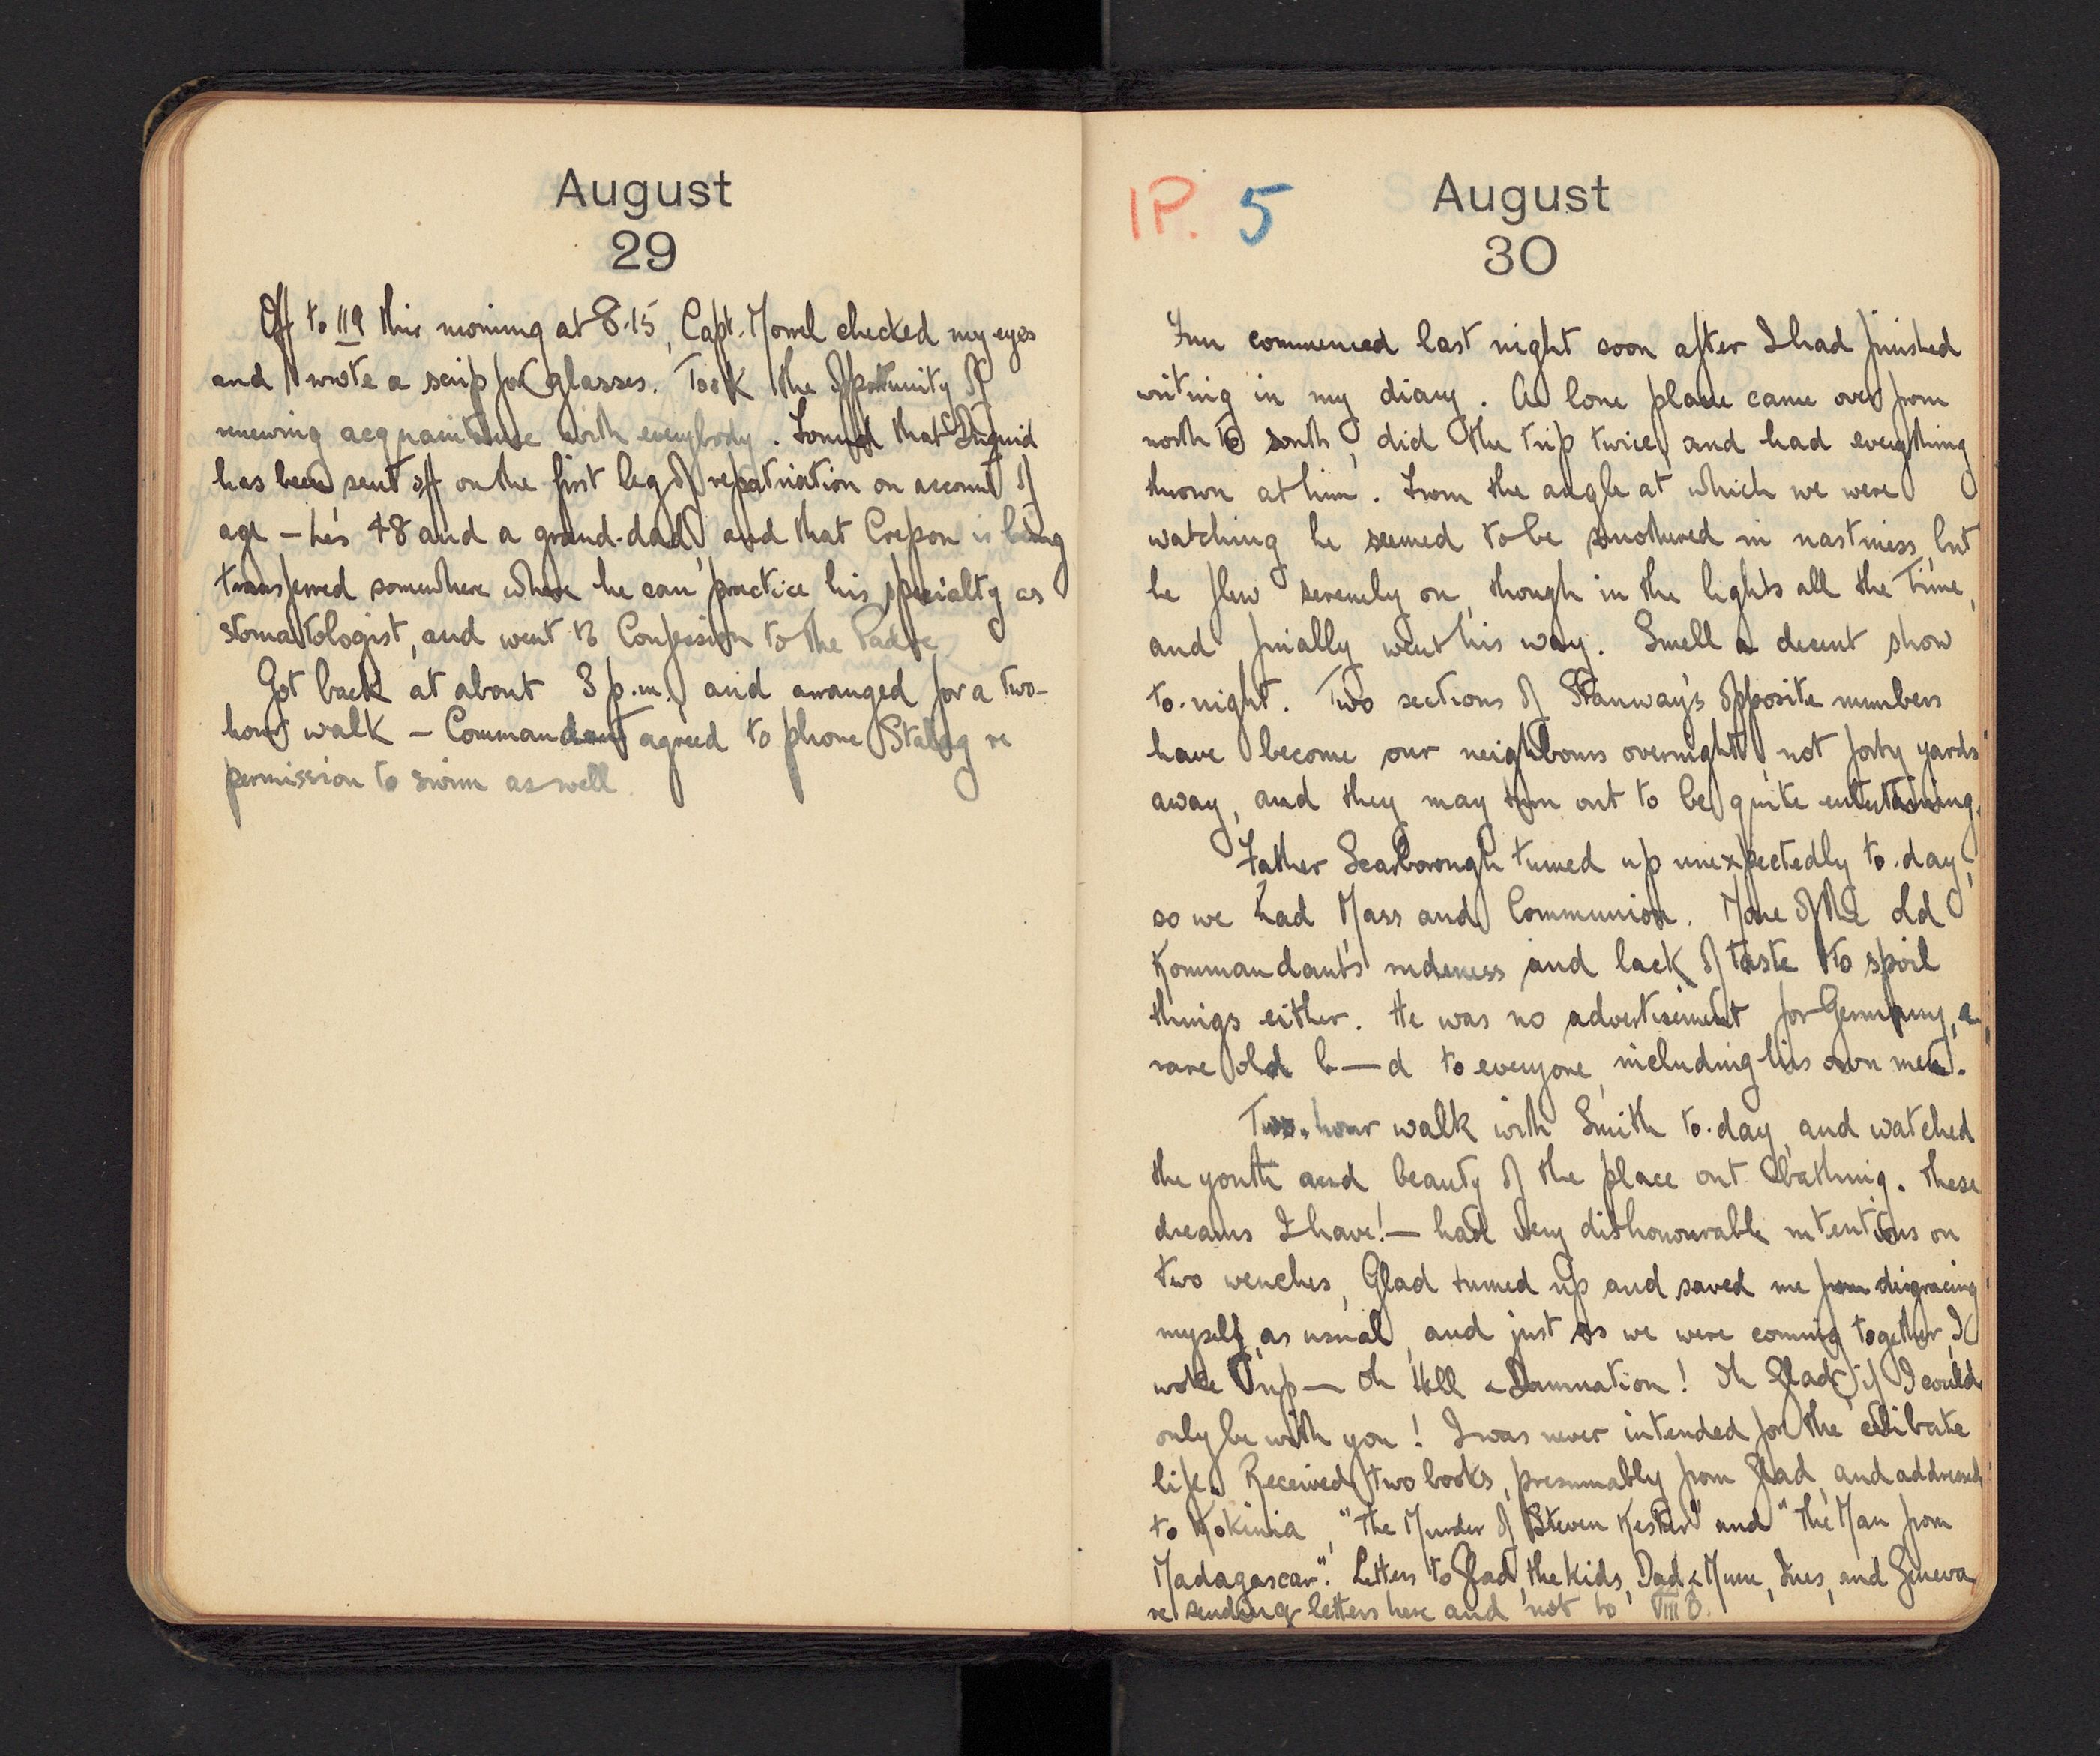 August
29
Off to 119 this morning at 8.15, Capt. Morrel checked my eyes
and wrote a scrip for glasses. Took the opportunity of
renewing acquaintance with everybody. Found that
has been sent off on the first leg of repatriation on account of
age – he's 48 and a grand-dad, and that Crepon is being
transferred somewhere where he can practice his specialty as
stomatologist, and went to Confession to the Padre.
Got back at about 3 p.m., and arranged for a two-
hour walk – Commandant agreed to phone Stalag re
permission to swim as well.
1P. 5
August
30
Fun commenced last night soon after I had finished
writing in my diary. A lone plane came over from
north to south, did the trip twice, and had everything
thrown at him. From the angle at which we were
watching he seemed to be smothered in nastiness, but
he flew serenely on, though in the lights all the time,
and finally went his way. Smell a decent show
to-night. Two sections of Stanway's opposite numbers
have become our neighbours overnight, not forty yards
away, and they may turn out to be quite entertaining.
Father Scarborough turned up unexpectedly to-day,
so we had Mass and Communion. None of the old
Kommandant's rudeness and lack of taste to spoil
things either. He was no advertisement for Germany, a
rare old b—d to everyone, including his own men.
Two-hour walk with Smith to-day, and watched
the youth and beauty of the place out bathing. These
dreams I have! – had very dishonourable intentions on
two wenches, Glad turned up and saved me from disgracing
myself, as usual, and just as we were coming together, I
woke up – Oh Hell & Damnation! Oh Glad, if I could
only be with you! I was never intended for the celibate
life. Received two books, presumably from Glad, and addressed
to Kokinia, "The Murder of Steven Kester" and "The Man from
Madagascar". Letters to Glad, the kids, Dad & Mum, Ines, and Geneva
re sending letters here and not to VIII B.